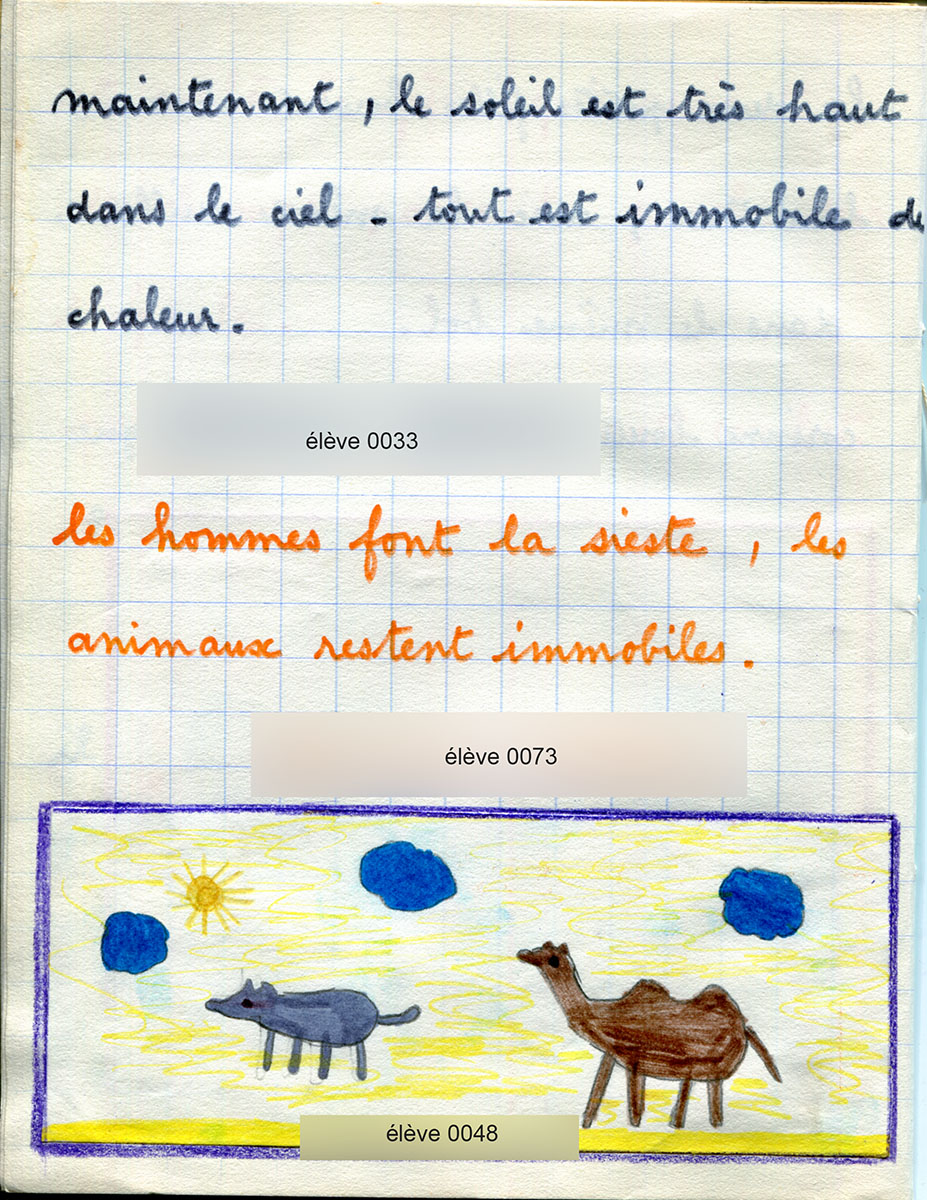 maintenant, le soleil est très haut
dans le ciel - tout est immobile de
chaleur.
élève 0033
les hommes font la sieste, les
animaux restent immobiles.
élève 0073
élève 0048